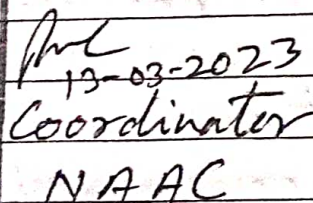 13-03-2023
Coordinator
NAAC